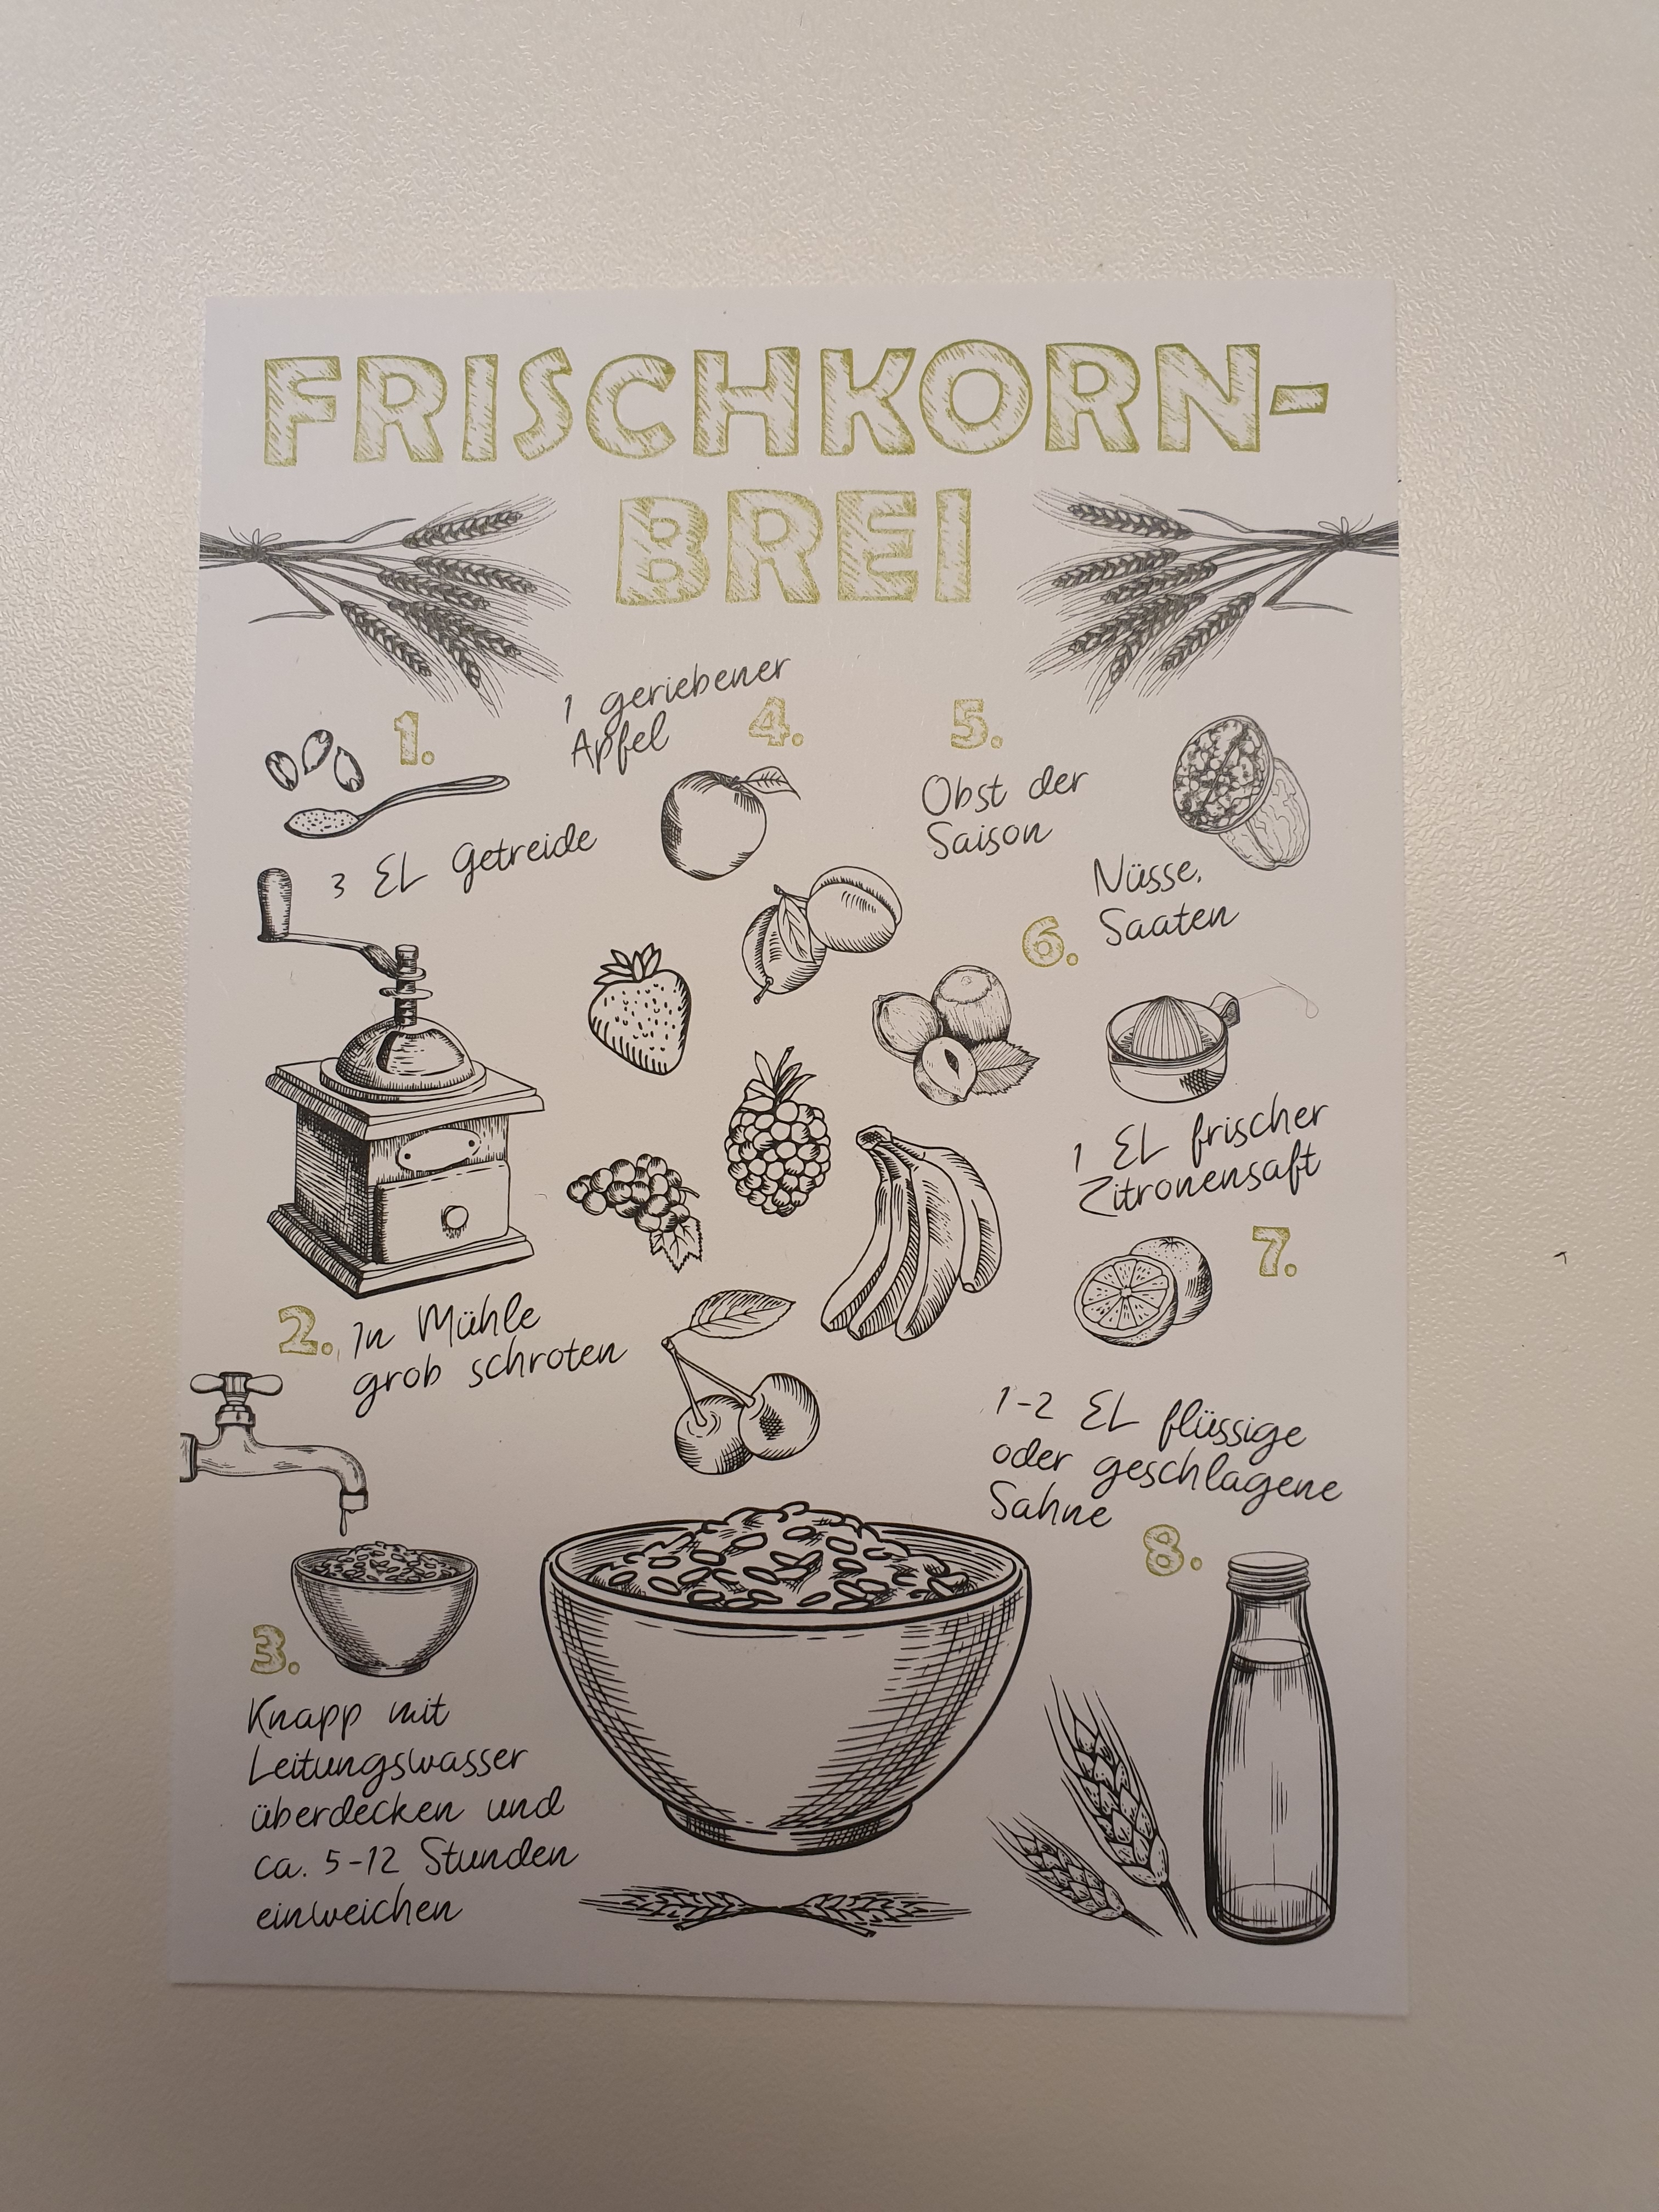 FRISCHKORN-
BREI
1.
3 EL Getreide
2. In Mühle
grob schroten
3.
Knapp mit
Leitungswasser
überdecken und
ca. 5-12 Stunden
einweichen
1 geriebener
Apfel
4.
5.
Obst der
Saison
6.
Nüsse,
Saaten
1 EL frischer
Zitronensaft
7.
1-2 EL flüssige
oder geschlagene
Sahne
8.